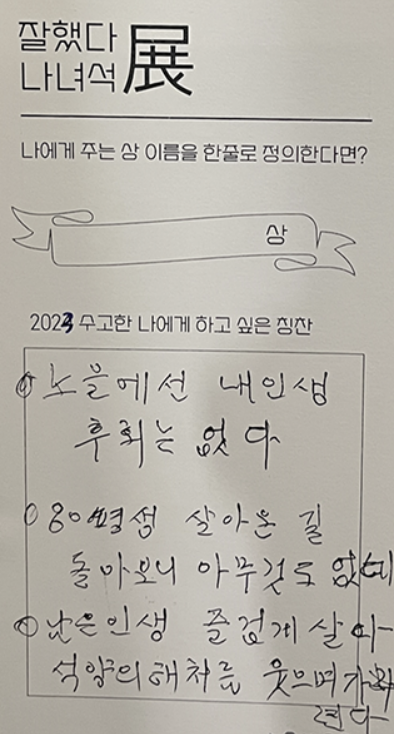 잘했다
나녀석 展
나에게 주는 상 이름을 한줄로 정의한다면?
상
2023 수고한 나에게 하고 싶은 칭찬
노을에선 내인생
후회는 없다
80평생 살아온 길
돌아보니 아무것도 없네
남은인생 즐겁게 살아
석양의해처름 웃으며가
련다